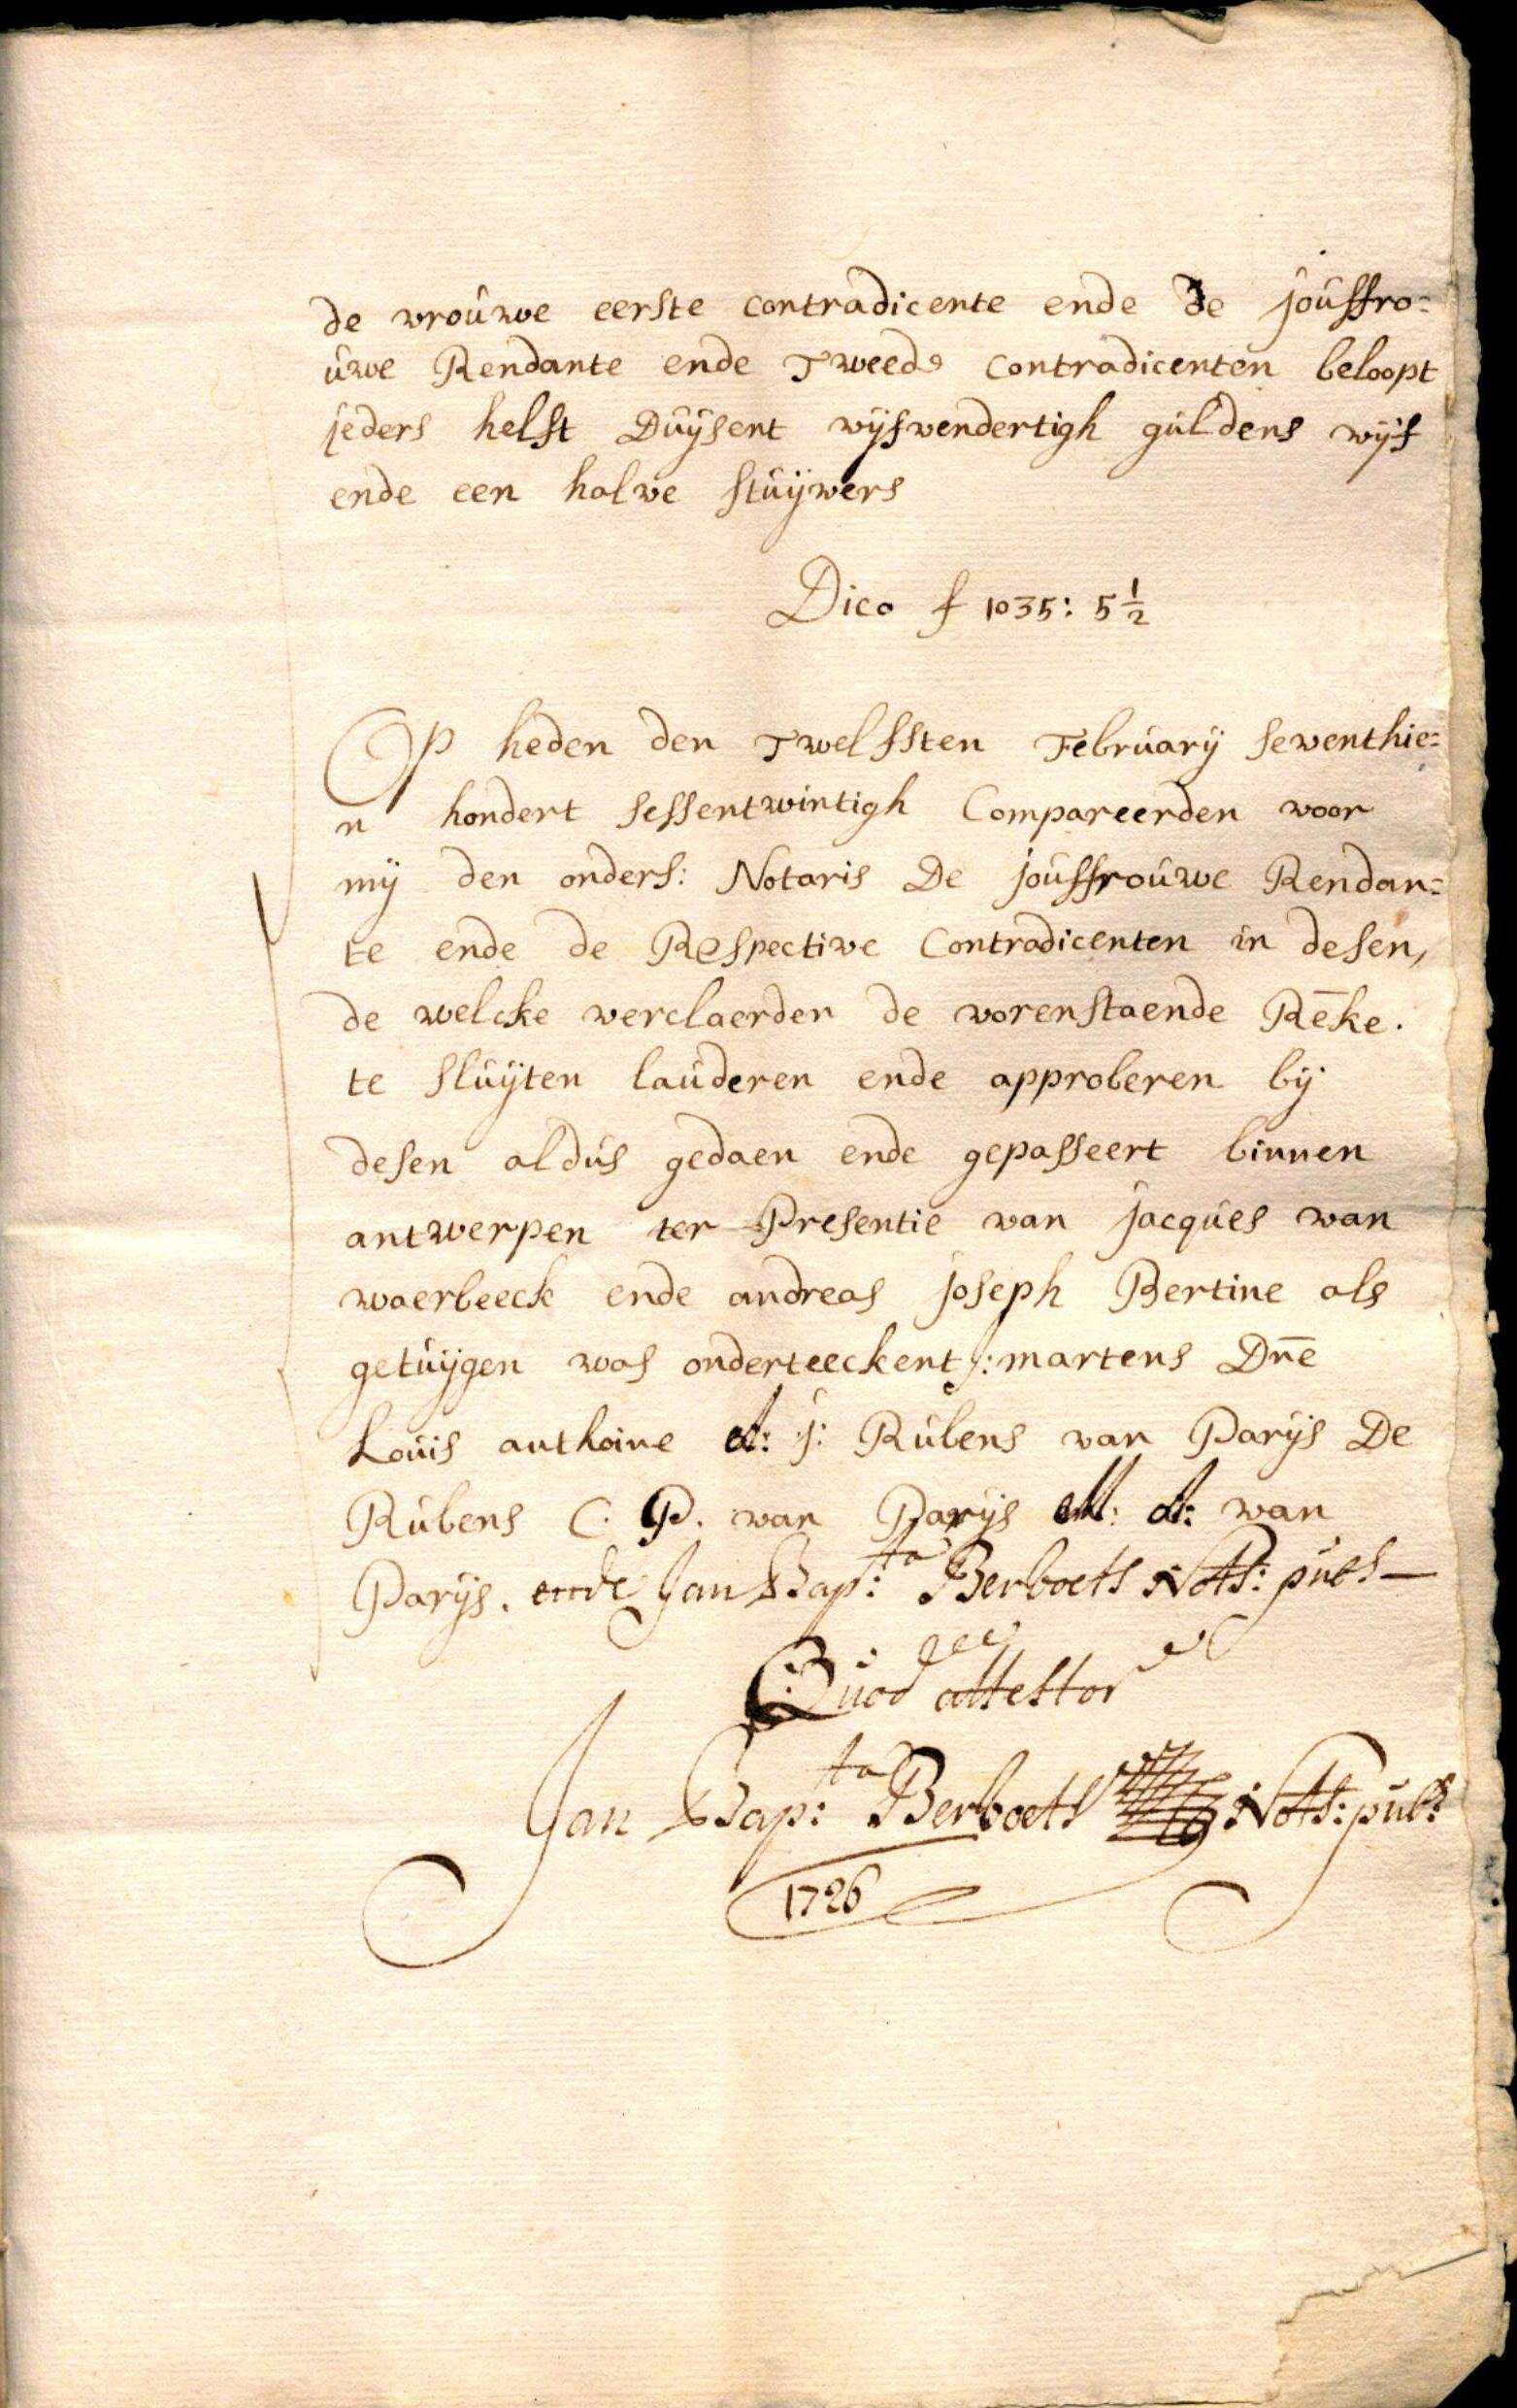 de vrouwe eerste contradicente ende de jouffro=
uwe Rendante ende Tweede contradicenten beloopt
jeders helft Duijsent vijfvendertigh guldens vijf
ende een halve stuijvers
Dico f 1035: 5 1/2
Op heden den Twelfsten February seventhie=
n hondert sessentwintigh Compareerden voor
mij den onders: Notaris De jouffrouwe Rendan=
te ende de Respective Contradicenten in desen,
de welcke verclaerden de vorenstaende Rēke.
te sluijten lauderen ende approberen bij
desen aldus gedaen ende gepasseert binnen
antwerpen ter Presentie van jacques van
waerbeeck ende andreas joseph Bertine als
getuijgen was onderteeckent /: martens Dn̄e
Louis anthoine A: j: Rubens van Parijs De
Rubens C. P. van Parijs M: A: van
Parijs. ende Jan Bap:ta Berboets Nots: pubs
Quod attestor
Jan Bap:ta Berboets Nots: pubs
1726